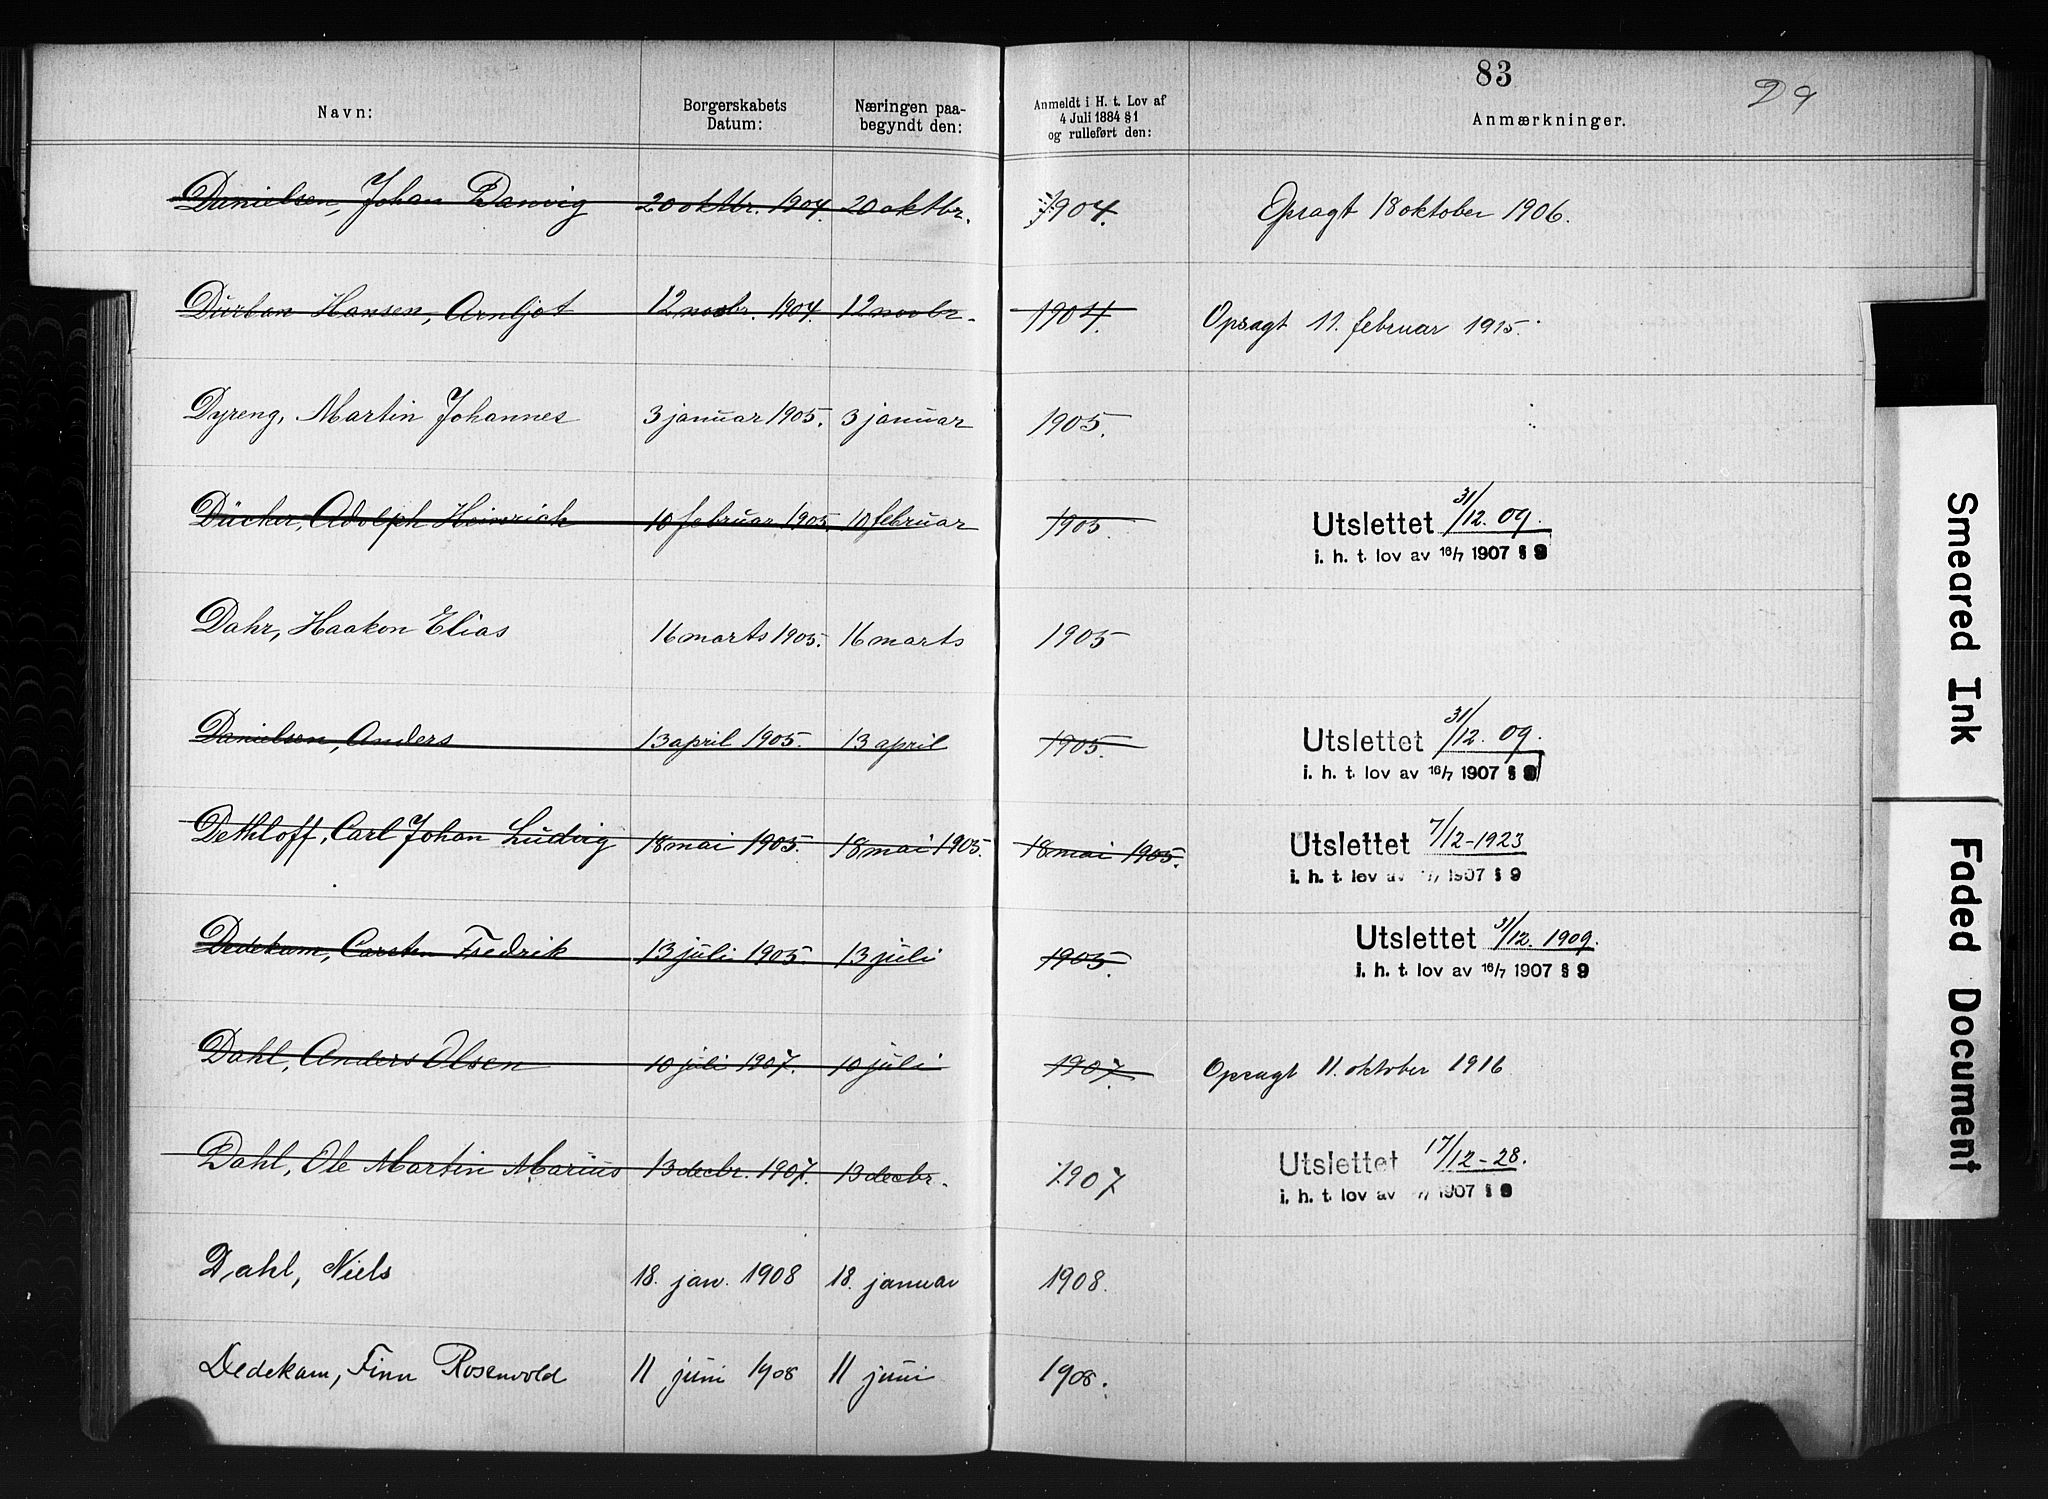 83
D 9
Navn:
Borgerskabets Datum:
Næringen paabegyndt den:
Anmeldt i H. t. Lov af 4 Juli 1884 § 1 og rulleført den:
Anmærkninger.
Danielsen, Johan Danvig 20 oktbr. 1904. 20 oktbr. 1904. Opsagt 18 oktober 1906.
Durban Hansen, Arnljot 12 novbr. 1904. 12 novbr. 1904. Opsagt 11. februar 1915.
Dyreng, Martin Johannes 3 januar 1905. 3 januar 1905.
Dücker, Adolph Heinrich 10 februar 1905 10 februar 1905. Utslettet 31/12. 09.
i. h. t. lov av 16/7 1907 § 9
Dahr, Haakon Elias 16 marts 1905. 16 marts 1905
Danielsen, Anders 13 april 1905. 13 april 1905. Utslettet 31/12. 09.
i. h. t. lov av 16/7 1907 § 9
Dethloff, Carl Johan Ludvig 18 mai 1905. 18 mai 1905. 18 mai 1905. Utslettet 7/12-1923
i. h. t. lov av /7 1907 § 9
Dedekam, Carsten Fredrik 13 juli 1905. 13 juli 1905. Utslettet 31/12. 1909.
i. h. t. lov av 16/7 1907 § 9
Dahl, Anders Olsen 10 juli 1907. 10 juli 1907. Opsagt 11. oktober 1916
Dahl, Ole Martin Marius 13 decbr. 1907. 13 decbr. 1907 Utslettet 17/12-28.
i. h. t. lov av /7 1907 § 9
Dahl, Niels 18. jan. 1908 18. januar 1908.
Dedekam, Finn Rosenvold 11 juni 1908 11 juni 1908.
Smeared Ink
Faded Document